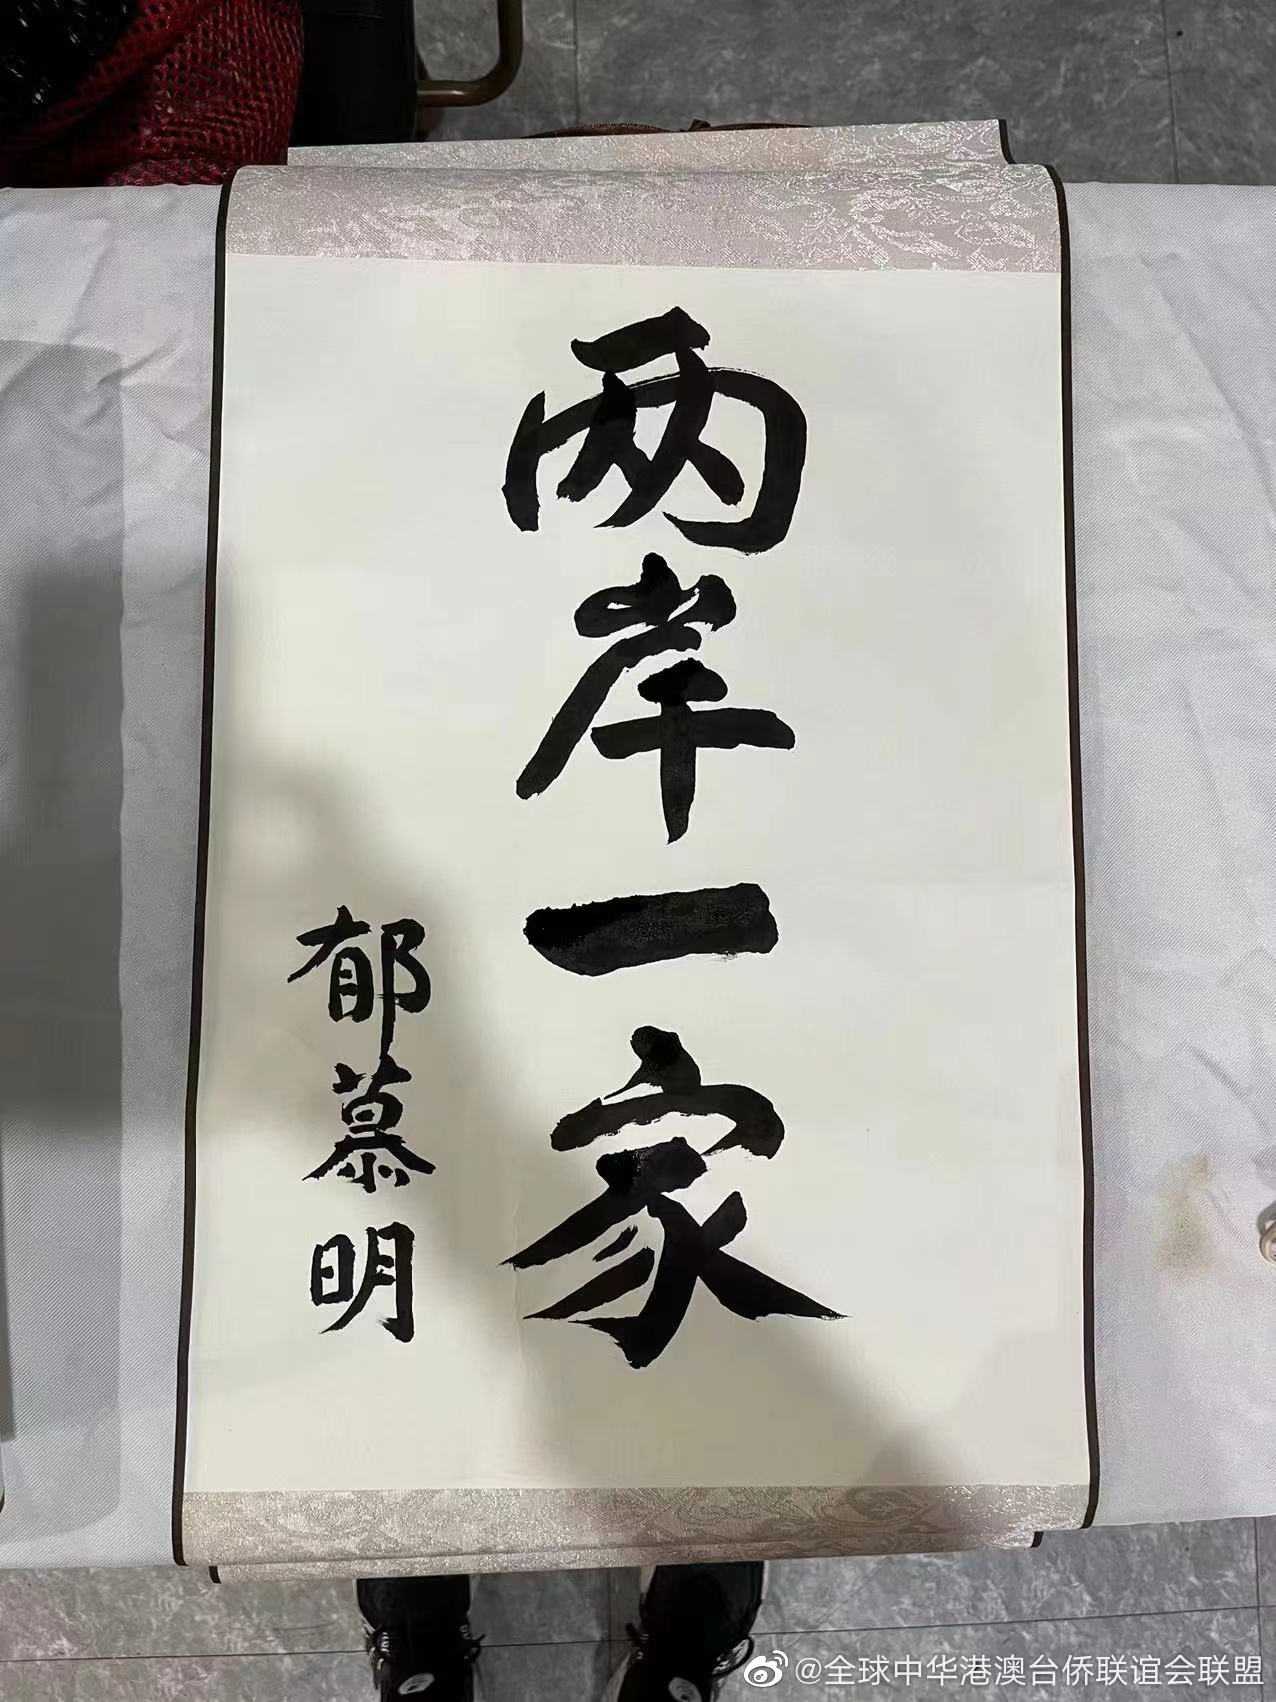 两岸一家
郁慕明
@全球中华港澳台侨联谊会联盟